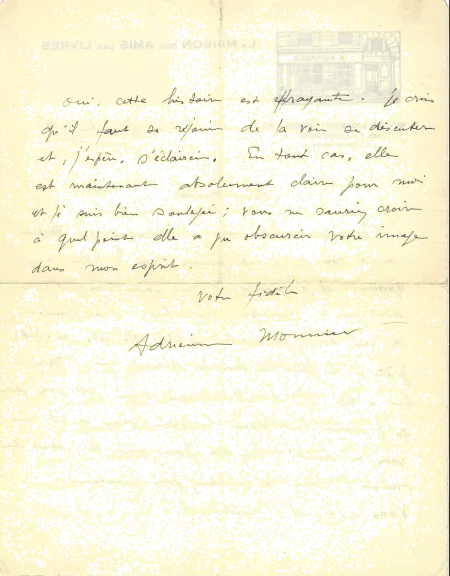 Oui, cette histoire est effrayante. Je crois
qu'il faut se réjouir de la voir se discuter
et, j'espère, s'éclaircir. En tout cas, elle
est maintenant absolument claire pour moi
et j'en suis bien soulagée ; vous ne sauriez croire
à quel point elle a pu obscurcir votre image
dans mon esprit.
Votre fidèle
Adrienne Monnier
LA MAISON DES AMIS DES LIVRES